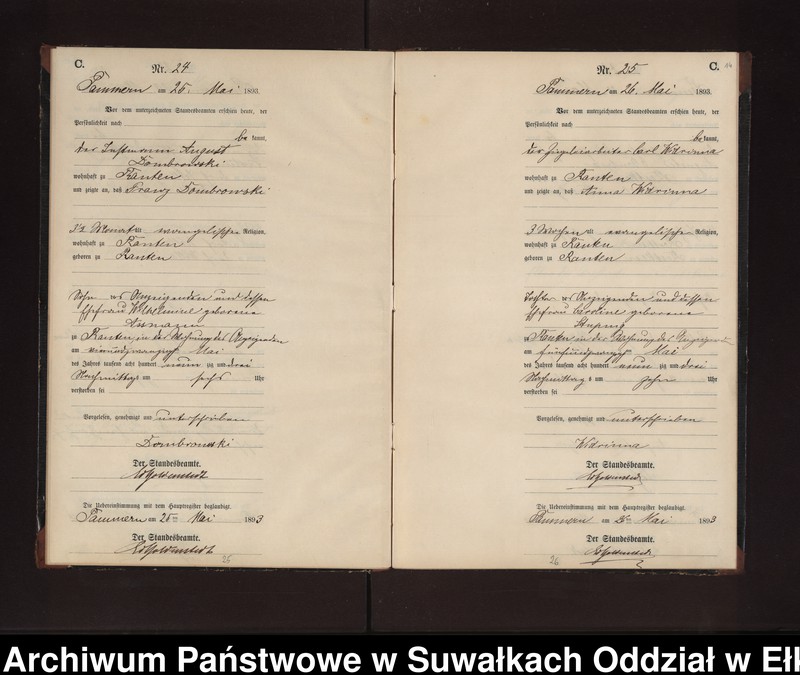 C.
Nr. 24
Tammern am 25. Mai 1893.
Vor dem unterzeichneten Standesbeamten erschien heute, der
Persönlichkeit nach
be kannt,
der Instmann August
Dombrowski
wohnhaft zu Ranten
und zeigte an, daß Franz Dombrowski
3½ Monat alt evangelischer Religion,
wohnhaft zu Ranten
geboren zu Ranten
Sohn des Anzeigenden und dessen
Ehefrau Wilhelmine geborene
zu Ranten in der Wohnung des Anzeigenden
am vierundzwanzigsten Mai
des Jahres tausend acht hundert neun zig und drei
Nachmittags um sechs Uhr
verstorben sei
Vorgelesen, genehmigt und unterschrieben
Dombrowski
Der Standesbeamte.
Die Uebereinstimmung mit dem Hauptregister beglaubigt.
Tammern am 25ten Mai 1893
Der Standesbeamte.
25
C.
Nr. 25
Tammern am 26. Mai 1893.
Vor dem unterzeichneten Standesbeamten erschien heute, der
Persönlichkeit nach
be kannt,
der Ziegeleiarbeiter Carl Wdrinna
wohnhaft zu Ranten
und zeigte an, daß Anna Wdrinna
3 Wochen alt evangelischer Religion,
wohnhaft zu Ranten
geboren zu Ranten
Tochter des Anzeigenden und dessen
Ehefrau Caroline geborene
zu Ranten in der Wohnung des Anzeigenden
am fünfundzwanzigsten Mai
des Jahres tausend acht hundert neun zig und drei
Nachmittag s um zehn Uhr
verstorben sei
Vorgelesen, genehmigt und unterschrieben
Wdrinna
Der Standesbeamte.
Die Uebereinstimmung mit dem Hauptregister beglaubigt.
Tammern am 26ten Mai 1893
Der Standesbeamte.
26
Archiwum Państwowe w Suwałkach Oddział w Ełk